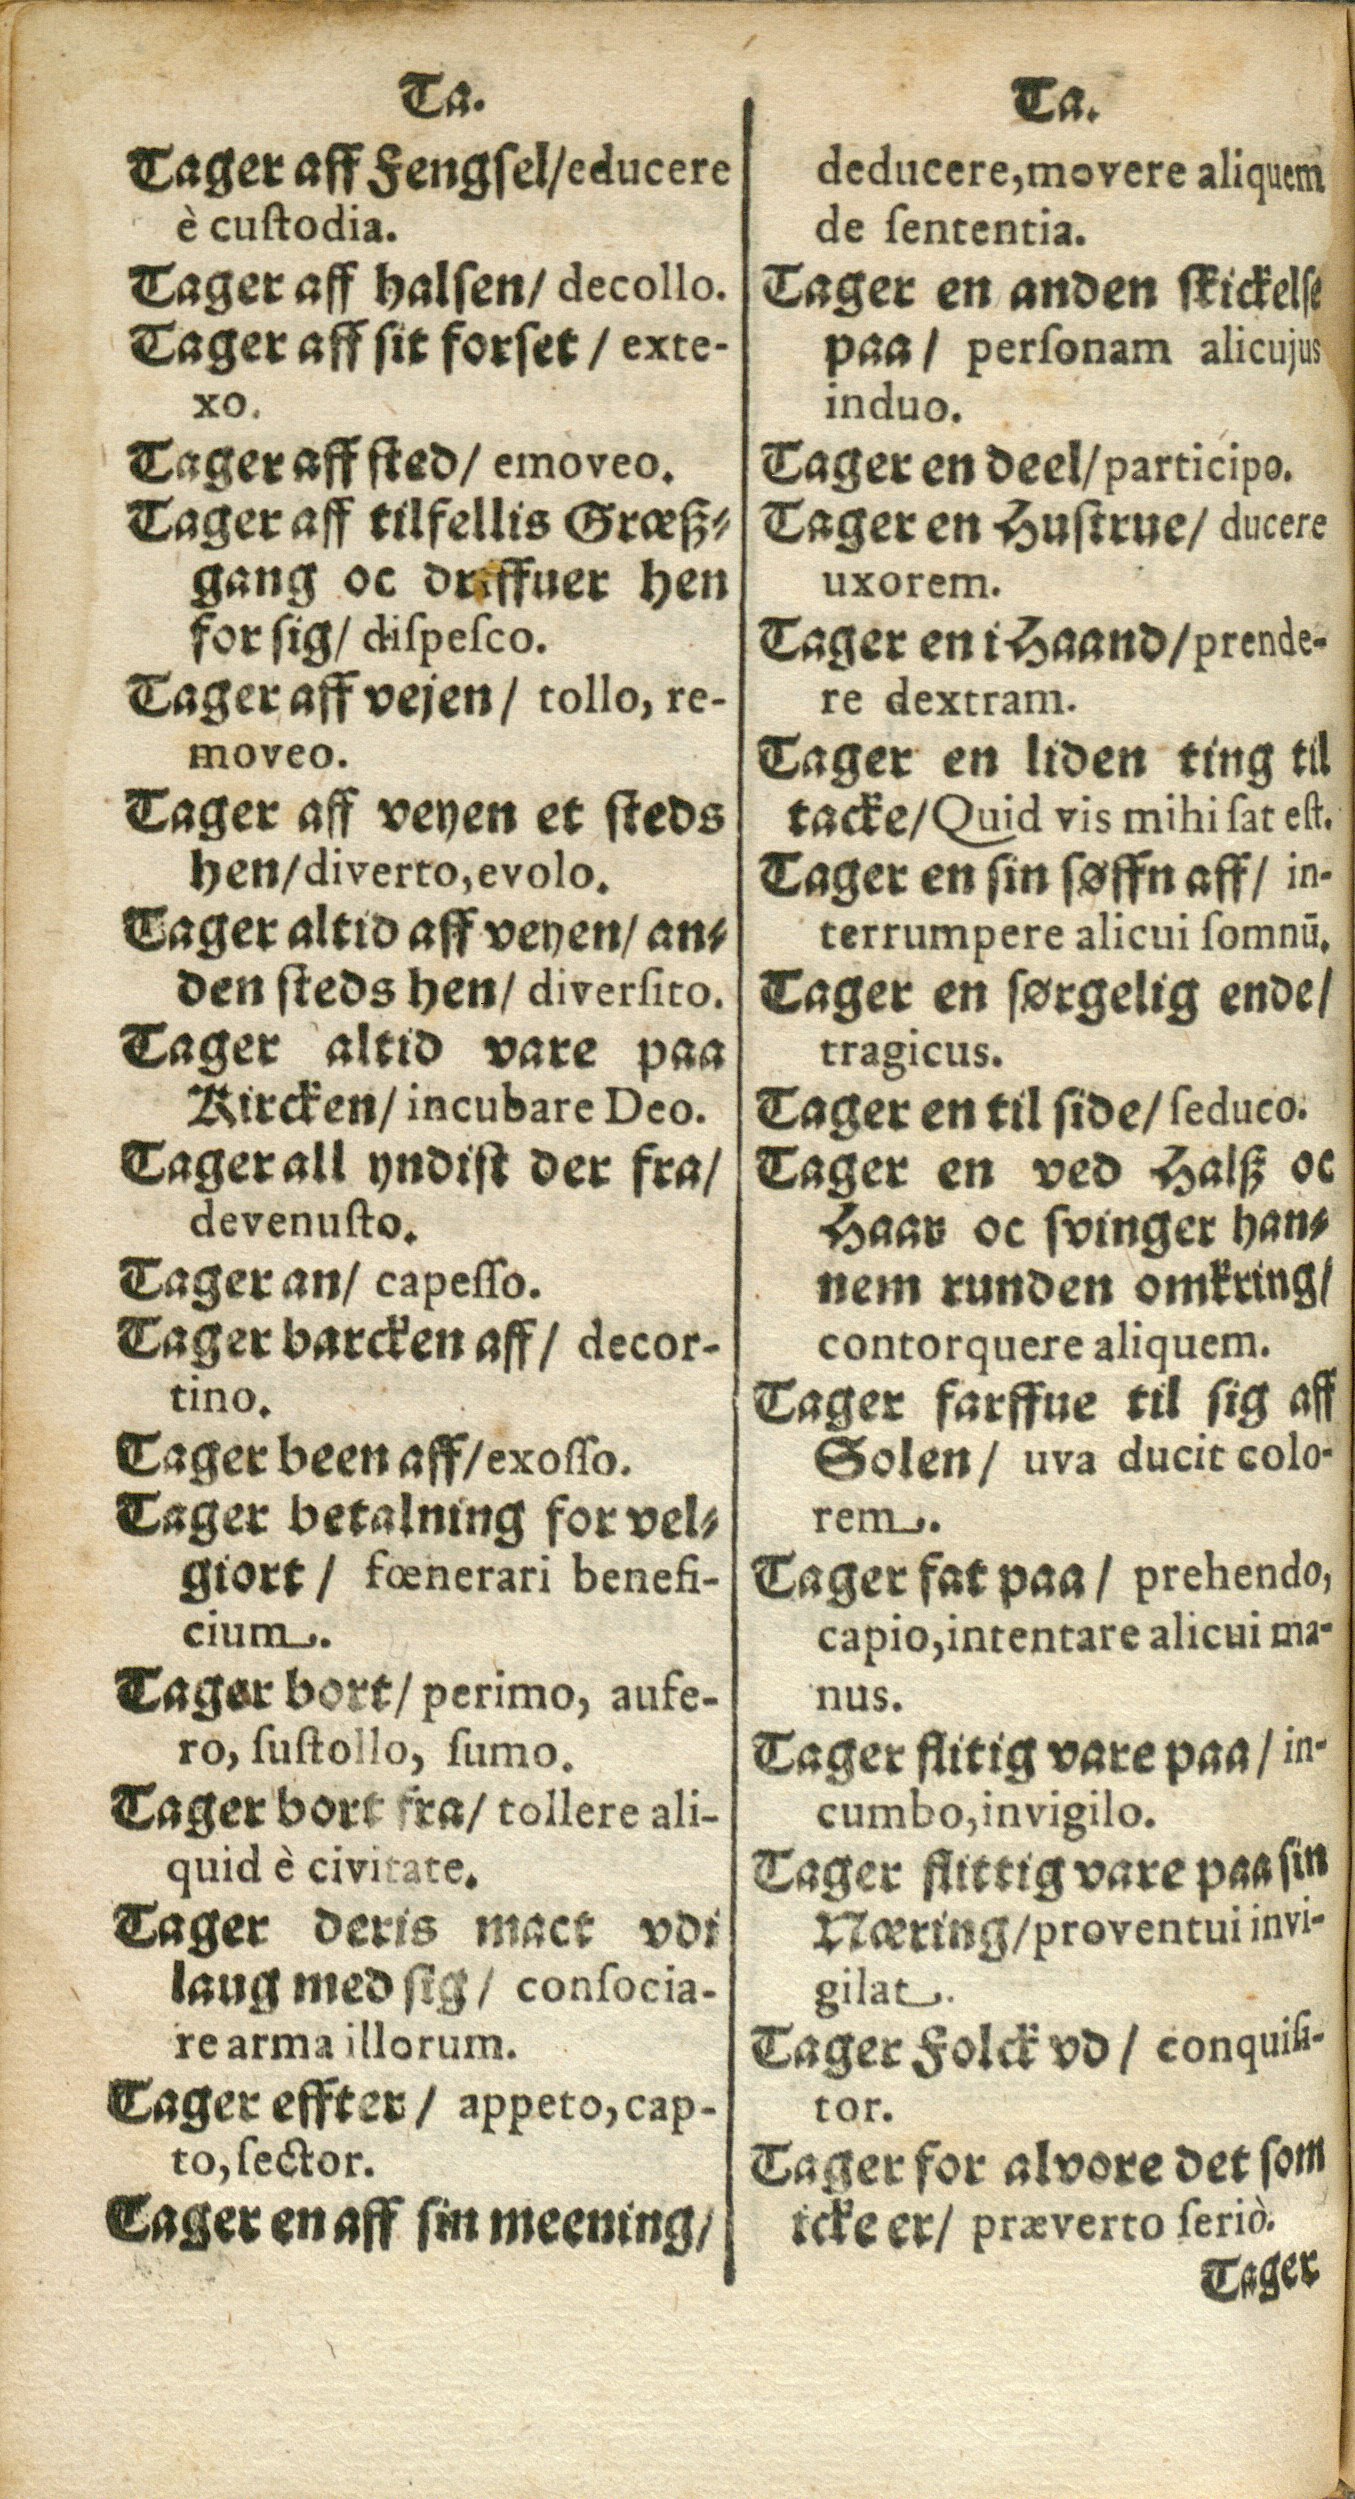 Ta.
Tager aff Fengſel/educere
è cuſtodia.
Tager aff halſen/ decollo.
Tager aff ſit forſet / exte-
xo.
Tager aff ſted/ emoveo.
Tager aff tilfellis Græß-
gang oc driffuer hen
for ſig/ diſpeſco.
Tager aff vejen/ tollo, re-
moveo.
Tager aff veyen et ſteds
hen/diverto,evolo.
Tager altid aff veyen/ an-
den ſteds hen/ diverſito.
Tager altid vare paa
Kircken/ incubare Deo.
Tager all yndiſt der fra/
devenuſto.
Tager an/ capeſſo.
Tager barcken aff/ decor-
tino.
Tager been aff/exoſſo.
Tager betalning for vel-
giort / fœnerari benefi-
cium.
Tager bort/ perimo, aufe-
ro, ſuſtollo, ſumo.
Tager bort fra/ tollere ali-
quid è civitate.
Tager deris mact vdi
laug med ſig/ conſocia-
re arma illorum.
Tager effter/ appeto,cap-
to,ſector.
Tager en aff ſin meening/
Ta.
deducere,movere aliquem
de ſententia.
Tager en anden ſkickelſe
paa/ perſonam alicujus
induo.
Tager en deel/participo.
Tager en Huſtrue/ ducere
uxorem.
Tager en i Haand/prende-
re dextram.
Tager en liden ting til
tacke/Quid vis mihi ſat eſt.
Tager en ſin ſøffn aff/ in-
terrumpere alicui ſomnū.
Tager en ſørgelig ende/
tragicus.
Tager en til ſide/ ſeduco.
Tager en ved Halß oc
Haar oc ſvinger han-
nem runden omkring/
contorquere aliquem.
Tager farffue til ſig aff
Solen/ uva ducit colo-
rem.
Tager fat paa/ prehendo,
capio,intentare alicui ma-
nus.
Tager flitig vare paa/ in-
cumbo,invigilo.
Tager flittig vare paa ſin
Næring/proventui invi-
gilat.
Tager Folck vd/ conquiſi-
tor.
Tager for alvore det ſom
icke er/ præverto ſeriò.
Tager